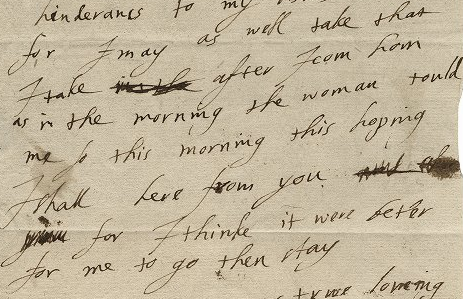 hinderants to my
for I may as well take that
I take in the after I com hom
as in the morning the woman tould
me so this morning this hoping
I shall here from you
for I thinke it were better
for me to go then stay
true loving